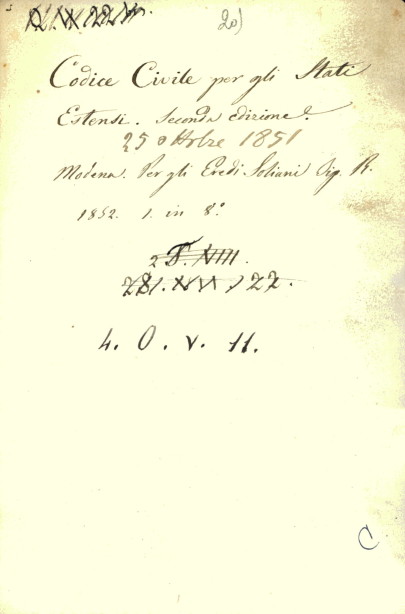 20)
Codice Civile per gli Stati
Estensi. Seconda edizione.
25 ottobre 1851
Modena. Per gli Eredi Soliani Tip. R.
1852. 1. in 8.°
4. O. V. 11.
C